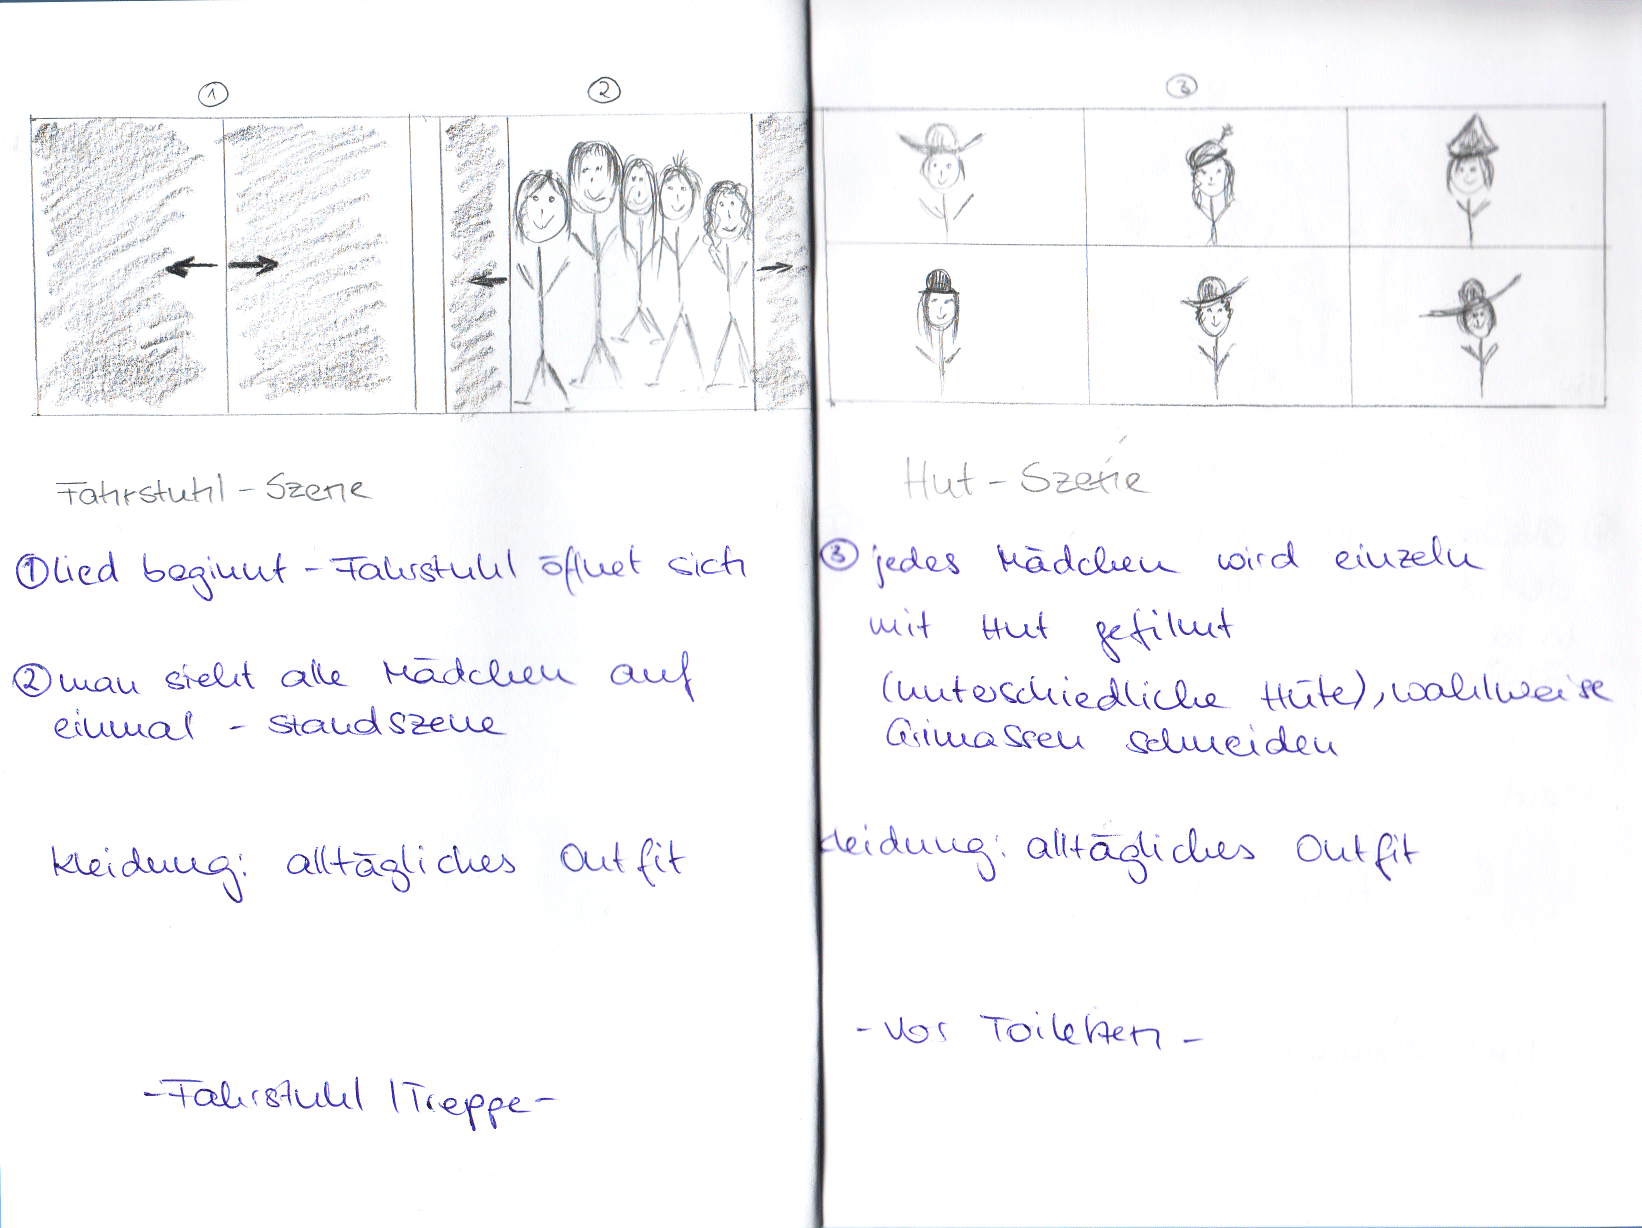 ①
②
Fahrstuhl - Szene
① Lied beginnt - Fahrstuhl öffnet sich
② man sieht alle Mädchen auf
einmal - Standszene
Kleidung: alltägliches Outfit
- Fahrstuhl / Treppe -
③
Hut - Szene
③ jedes Mädchen wird einzeln
mit Hut gefilmt
(unterschiedliche Hüte), wahlweise
Grimassen schneiden
Kleidung: alltägliches Outfit
- vor Toiletten -